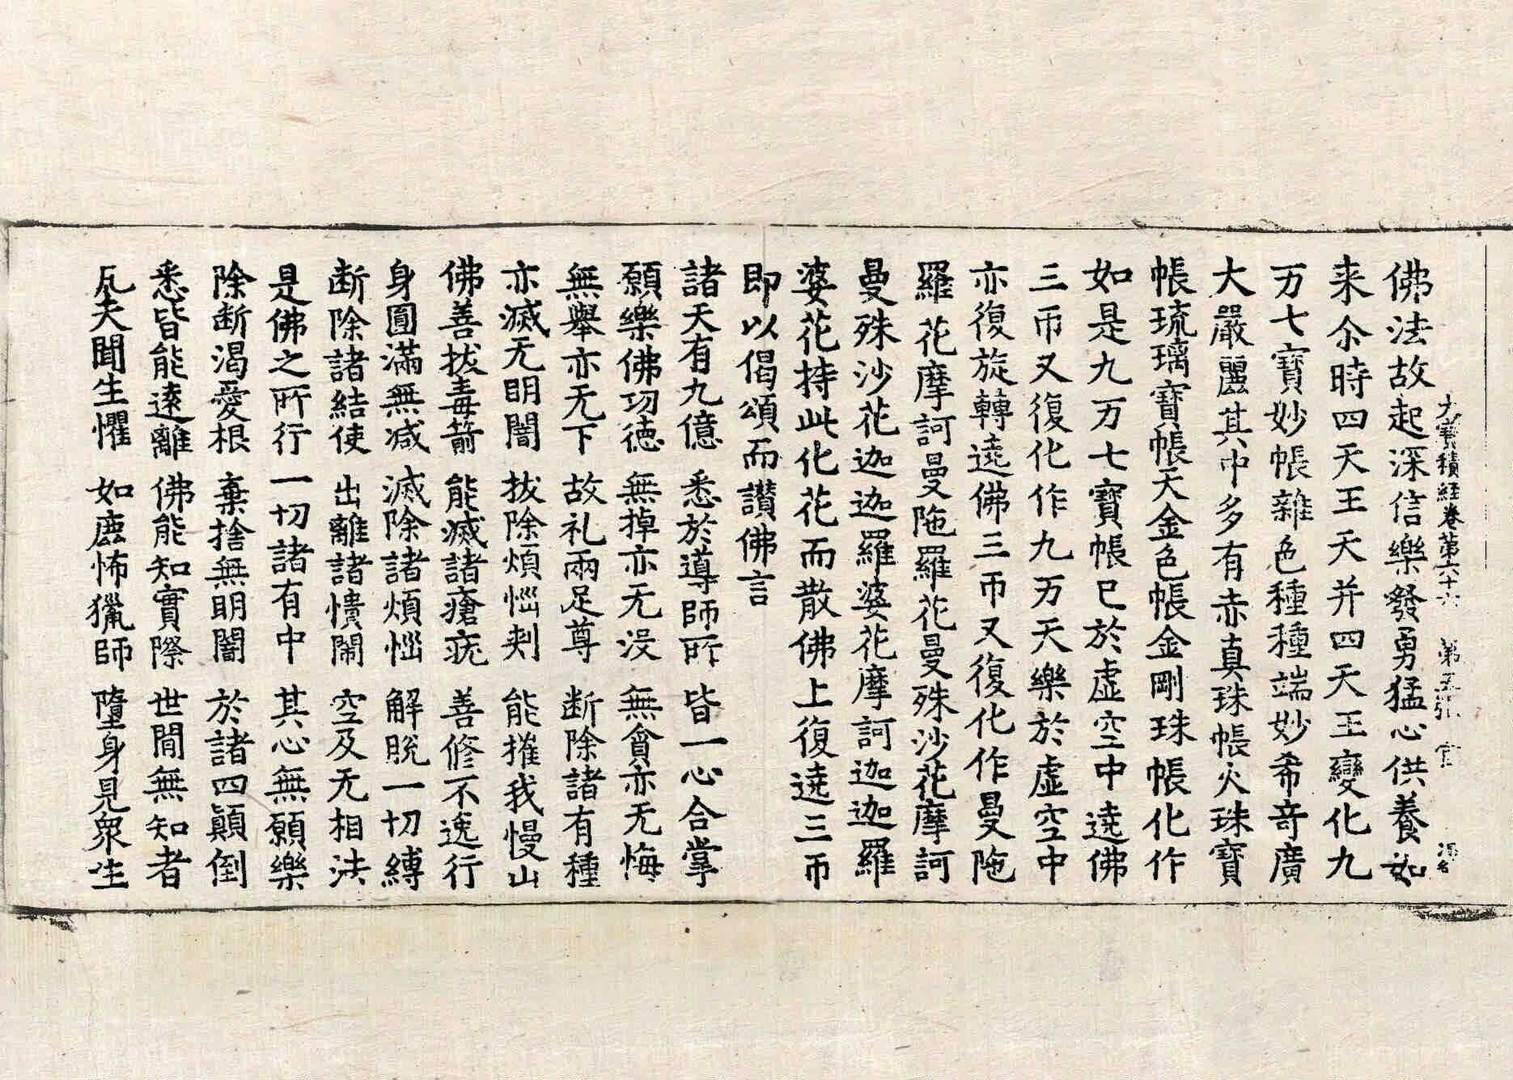 大寶積経卷第六十六　第五張　官
佛法故起深信樂發勇猛心供養如
来尒時四天王天并四天王變化九
万七寶妙帳雜色種種端妙希竒廣
大嚴麗其中多有赤真珠帳火珠寶
帳琉璃寶帳天金色帳金剛珠帳化作
如是九万七寶帳已於虚空中遶佛
三帀又復化作九万天樂於虚空中
亦復旋轉遶佛三帀又復化作曼陁
羅花摩訶曼陁羅花曼殊沙花摩訶
曼殊沙花迦迦羅婆花摩訶迦迦羅
婆花持此化花而散佛上復遶三帀
即以偈頌而讃佛言
諸天有九億　悉於導師所　皆一心合掌
願樂佛功徳　無掉亦无没　無貪亦无悔
無舉亦无下　故礼兩足尊　断除諸有種
亦滅无明闇　拔除煩惱刺　能摧我慢山
佛善拔毒箭　能滅諸瘡疣　善修不逸行
身圓滿無減　滅除諸煩惱　解脱一切縛
断除諸結使　出離諸憒閙　空及无相法
是佛之所行　一切諸有中　其心無願樂
除断渇愛根　棄捨無明闇　於諸四顛倒
悉皆能遠離　佛能知實際　世間無知者
凡夫聞生懼　如鹿怖獵師　墮身見衆生